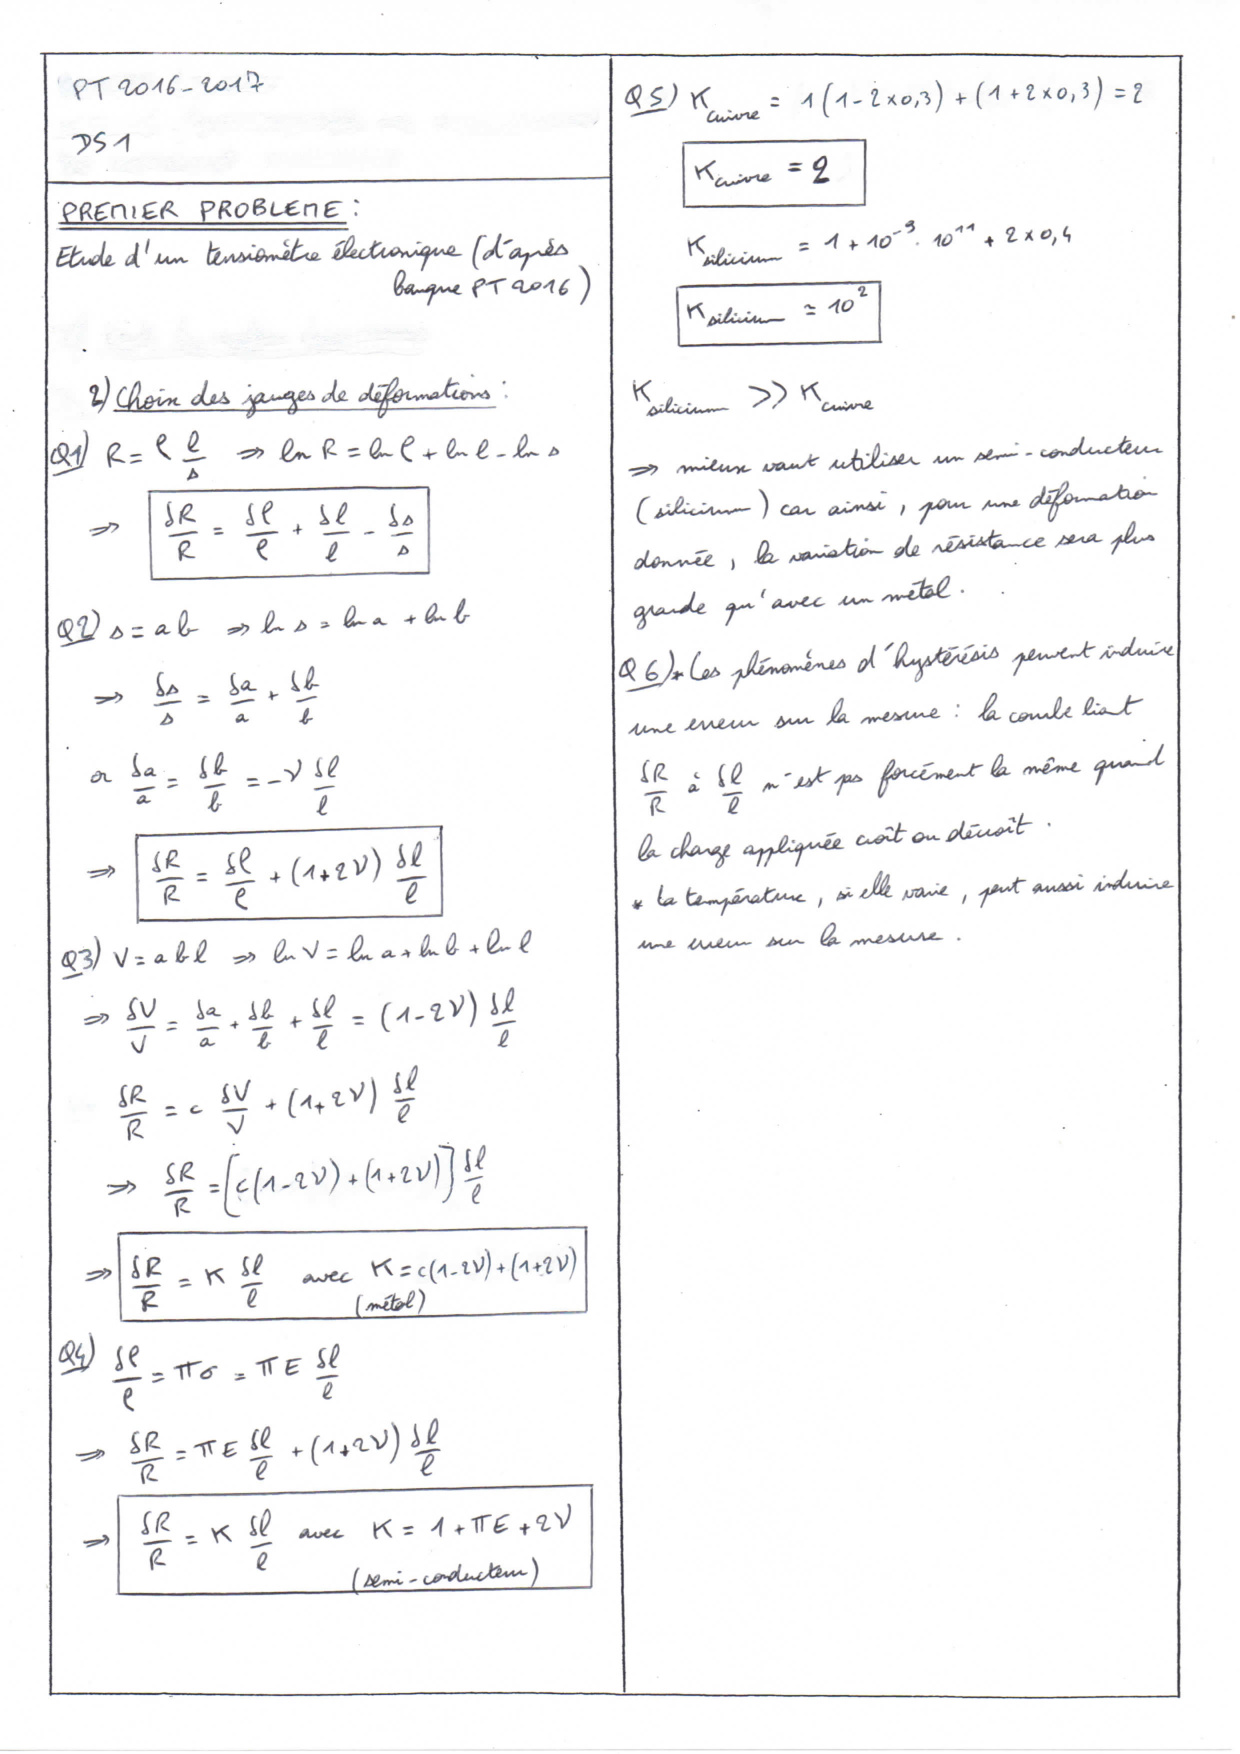 PT 2016-2017
DS 1
PREMIER PROBLEME :
Etude d'un tensiomètre électronique (d'après
banque PT 2016)
2) Choix des jauges de déformations :
Q1) R = ρ l/s ⇒ ln R = ln ρ + ln l - ln s
⇒ δR/R = δρ/ρ + δl/l - δs/s
Q2) s = ab ⇒ ln s = ln a + ln b
⇒ δs/s = δa/a + δb/b
or δa/a = δb/b = -ν δl/l
⇒ δR/R = δρ/ρ + (1+2ν) δl/l
Q3) V = abl ⇒ ln V = ln a + ln b + ln l
⇒ δV/V = δa/a + δb/b + δl/l = (1-2ν) δl/l
δR/R = c δV/V + (1+2ν) δl/l
⇒ δR/R = [c(1-2ν) + (1+2ν)] δl/l
⇒ δR/R = K δl/l avec K = c(1-2ν) + (1+2ν)
(métal)
Q4) δρ/ρ = πσ = πE δl/l
⇒ δR/R = πE δl/l + (1+2ν) δl/l
⇒ δR/R = K δl/l avec K = 1 + πE + 2ν
(semi-conducteur)
Q5) K cuivre = 1(1-2×0,3) + (1+2×0,3) = 2
K cuivre = 2
K silicium = 1 + 10⁻⁹. 10¹¹ + 2×0,4
K silicium ≃ 10²
K silicium >> K cuivre
⇒ mieux vaut utiliser un semi-conducteur
(silicium) car ainsi, pour une déformation
donnée, la variation de résistance sera plus
grande qu'avec un métal.
Q6) * Les phénomènes d'hystérésis peuvent induire
une erreur sur la mesure : la courbe liant
δR/R à δl/l n'est pas forcément la même quand
la charge appliquée croît ou décroît.
* La température, si elle varie, peut aussi induire
une erreur sur la mesure.